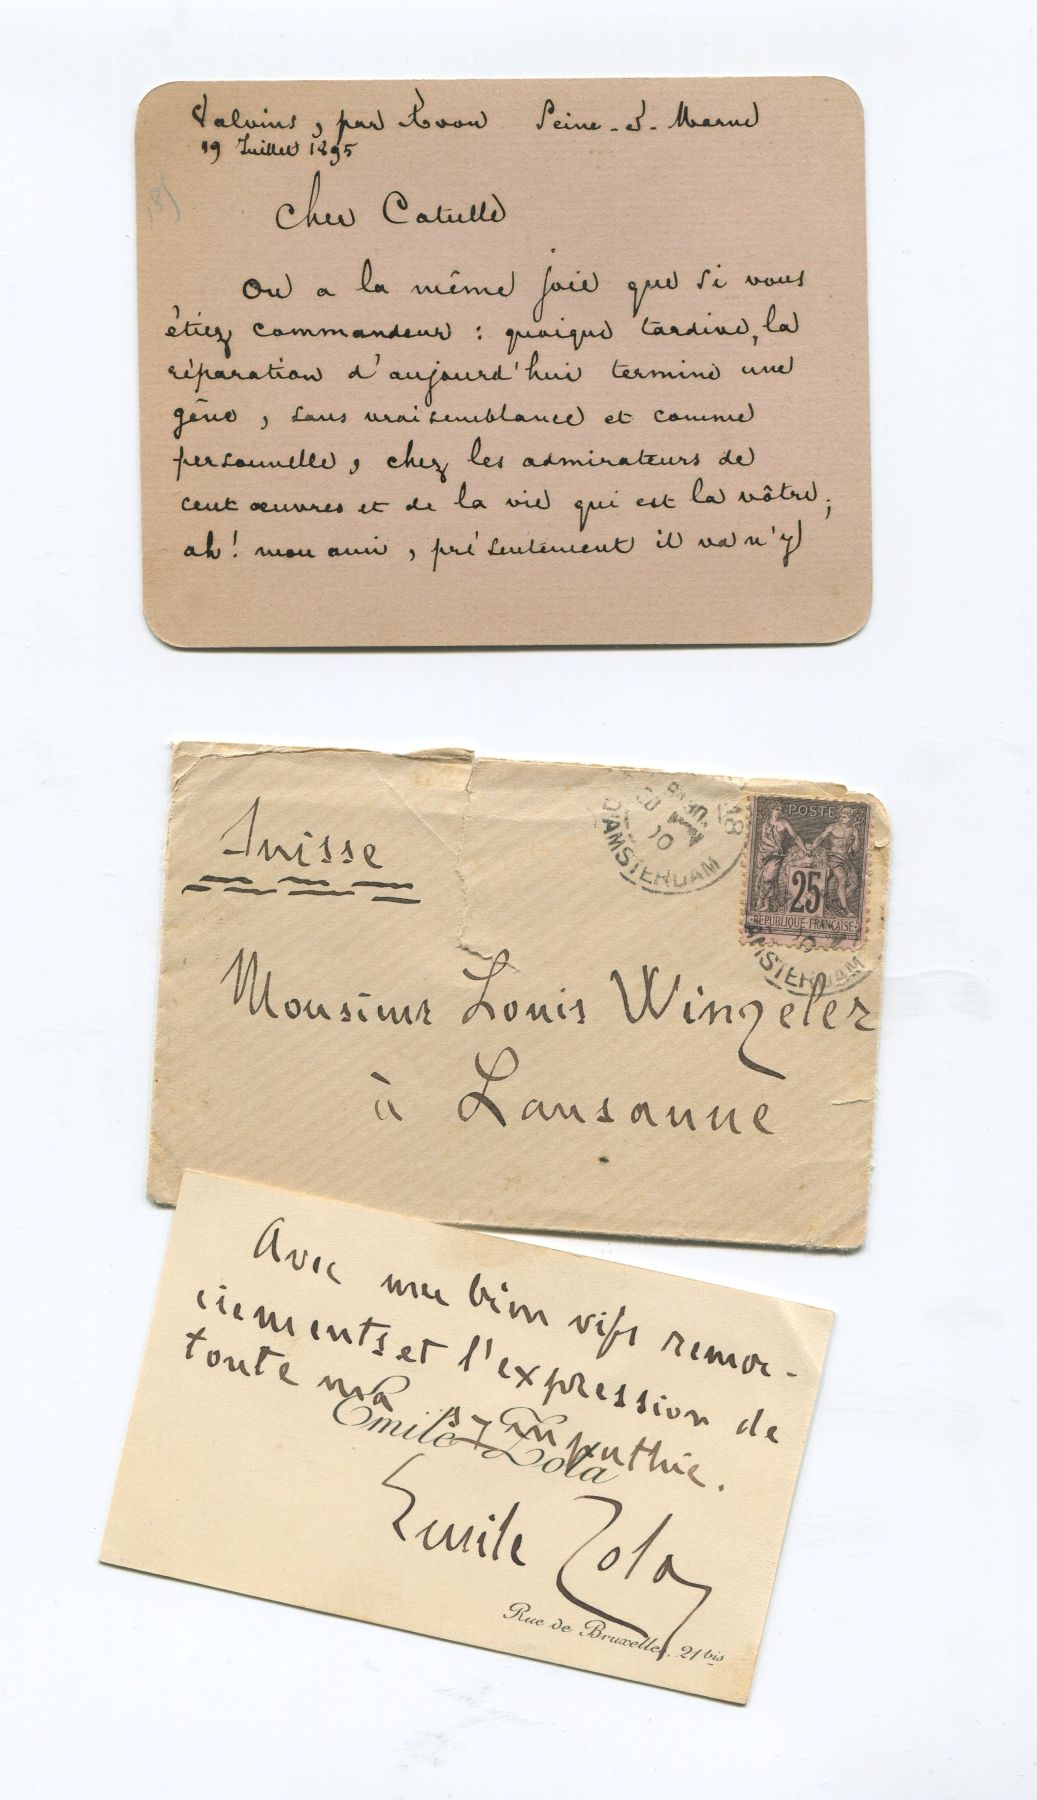 Valvins, par Avon Seine-&-Marne
19 Juillet 1895
Cher Catulle
On a la même joie que si vous
étiez commandeur : quoique tardive, la
réparation d'aujourd'hui termine une
gêne, sans vraisemblance et comme
personnelle, chez les admirateurs de
cent œuvres et de la vie qui est la vôtre;
ah! mon ami, présentement il va n'y
Suisse
D'AMSTERDAM
10
POSTE
25
REPUBLIQUE FRANÇAISE
AMSTERDAM
Monsieur Louis Winzeler
à Lausanne
Avec mes bien vifs remer-
ciements et l'expression de
toute ma sympathie.
Emile Zola
Emile Zola
Rue de Bruxelles, 21 bis